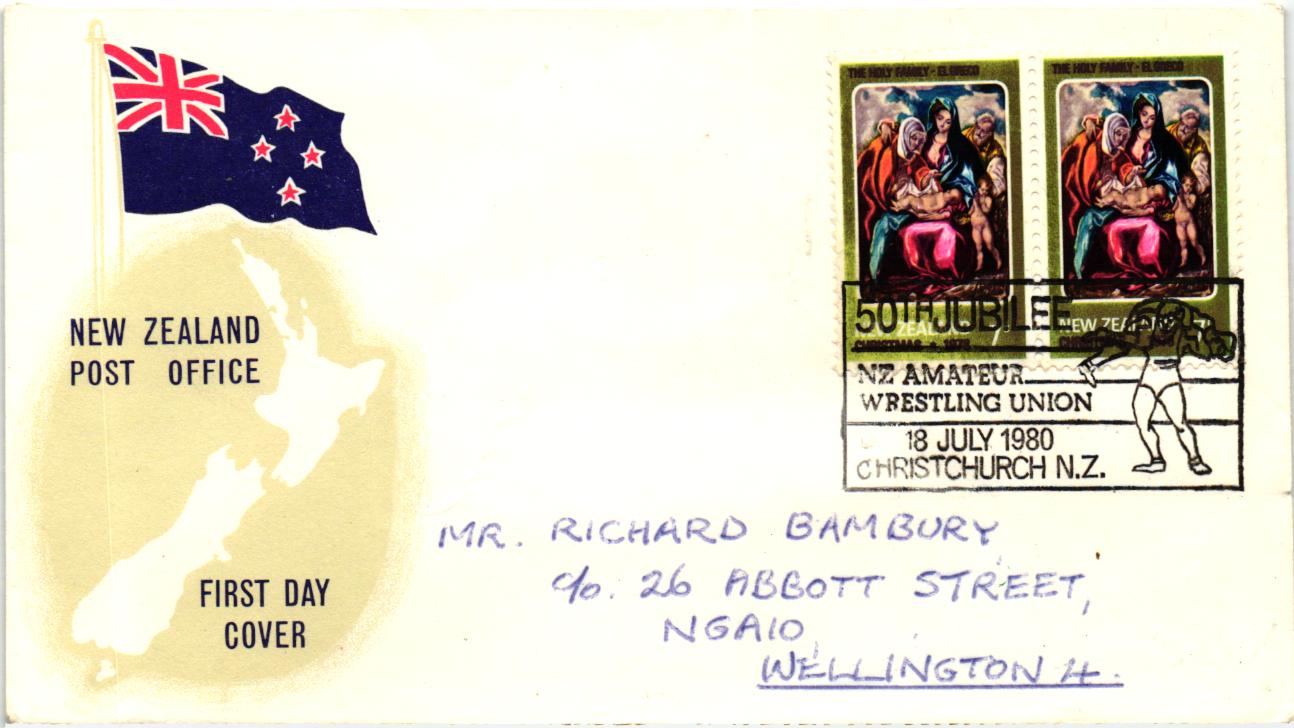 NEW ZEALAND
POST OFFICE
FIRST DAY
COVER
THE HOLY FAMILY - EL GRECO
THE HOLY FAMILY - EL GRECO
NEW ZEALAND
NEW ZEALAND
50TH JUBILEE
NZ AMATEUR
WRESTLING UNION
18 JULY 1980
CHRISTCHURCH N.Z.
MR. RICHARD BAMBURY
c/o. 26 ABBOTT STREET,
NGAIO
WELLINGTON 4.